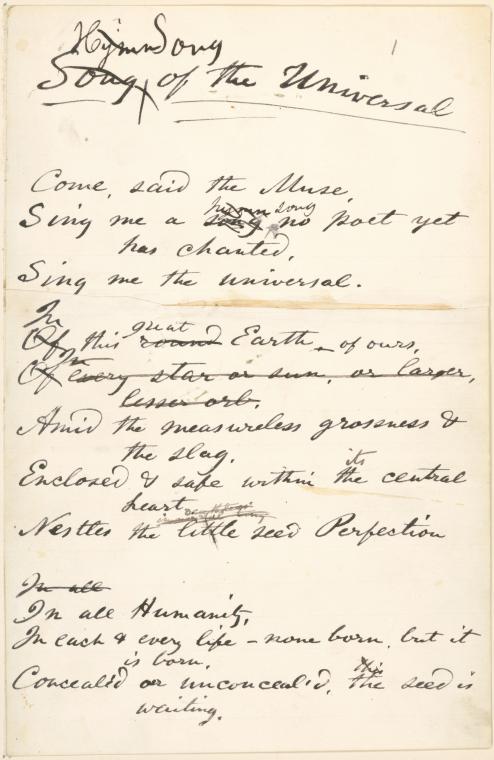 Hymn Song
1
Song of the Universal
Come, said the Muse,
hymn song
Sing me a song no poet yet
has chanted,
Sing me the universal.
In great
Of this round Earth – of ours,
Of every star or sun, or larger,
lesser orb.
Amid the measureless grossness &
the slag,
its
Enclosed & safe within the central
heart
Nestles the little seed Perfection
In all
In all Humanity,
In each & every life – none born, but it
is born,
this
Conceal'd or unconceal'd, the seed is
waiting.